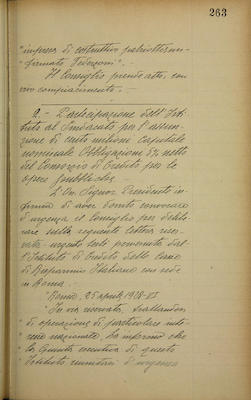 263
"impresa di costruttivo patriottismo
firmato Federzoni".
Il Consiglio prende atto, con
vivo compiacimento.
2. - Partecipazione dell'Isti-
tuto al Sindacato per l'assun-
zione di cento milioni capitale
nominale Obbligazioni di netto
del Consorzio di Credito per le
opere pubbliche.
L'On. Signor Presidente in-
forma di aver dovuto convocare
di urgenza il Consiglio per delibe-
rare sulla seguente lettera riser-
vata-urgente testé pervenuta dal-
l'Istituto di Credito delle Casse
di Risparmio Italiane con sede
in Roma.
"Roma, 25 aprile 1928-VI
"In via riservata, trattandosi
di operazione di particolare inte-
resse nazionale, La informo che
la Giunta esecutiva di questo
Istituto riunitasi d'urgenza